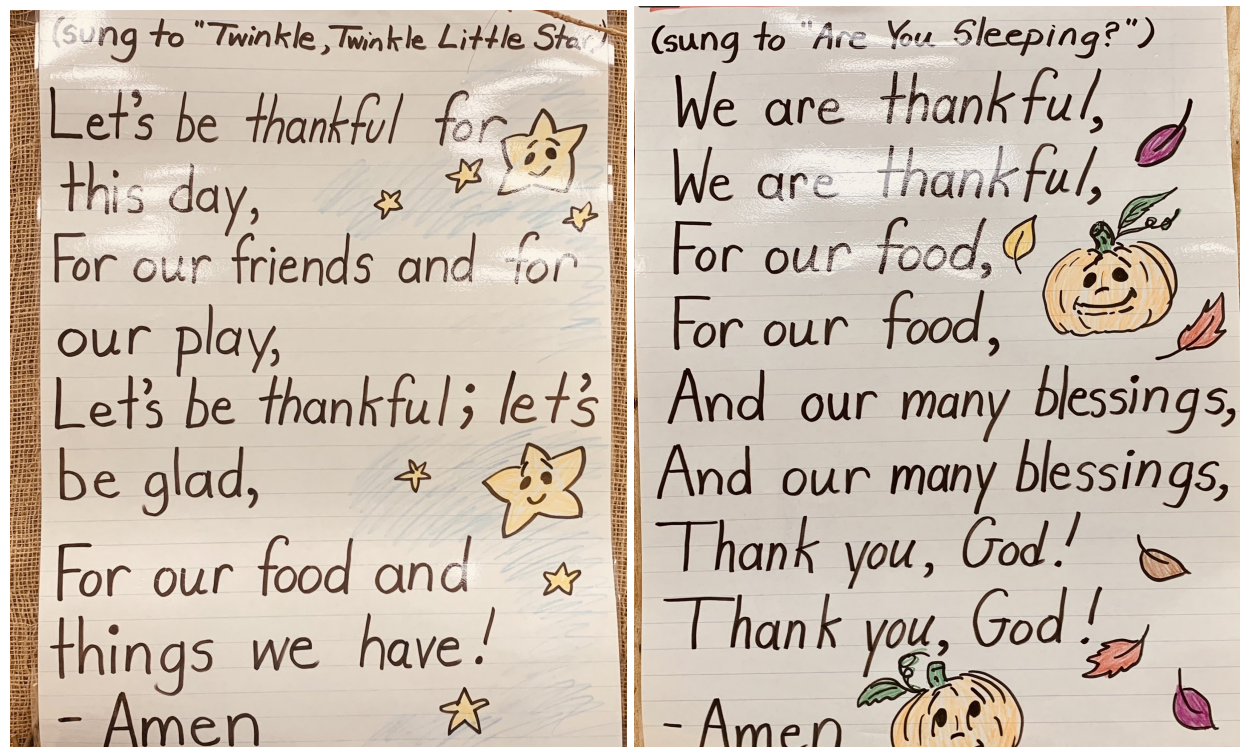 (sung to "Twinkle, Twinkle Little Star")
Let's be thankful for
this day,
For our friends and for
our play,
Let's be thankful; let's
be glad,
For our food and
things we have!
- Amen
(sung to "Are You Sleeping?")
We are thankful,
We are thankful,
For our food,
For our food,
And our many blessings,
And our many blessings,
Thank you, God!
Thank you, God!
- Amen